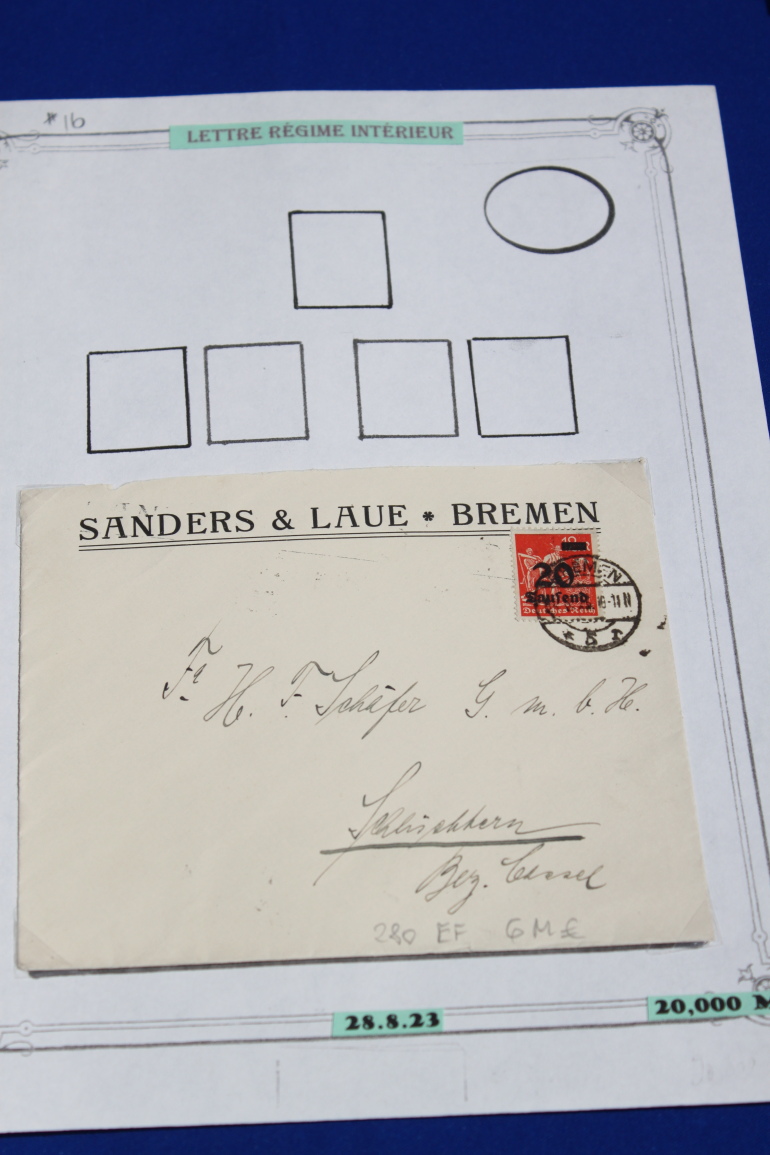 #16
LETTRE RÉGIME INTÉRIEUR
SANDERS & LAUE * BREMEN
20
Tausend
Deutsches Reich
BREMEN
8-11 N
* 5 r
Fa. H. F. Schäfer G. m. b. H.
Schlüchtern
Bez. Cassel
280 EF 6 M €
28.8.23
20,000 M